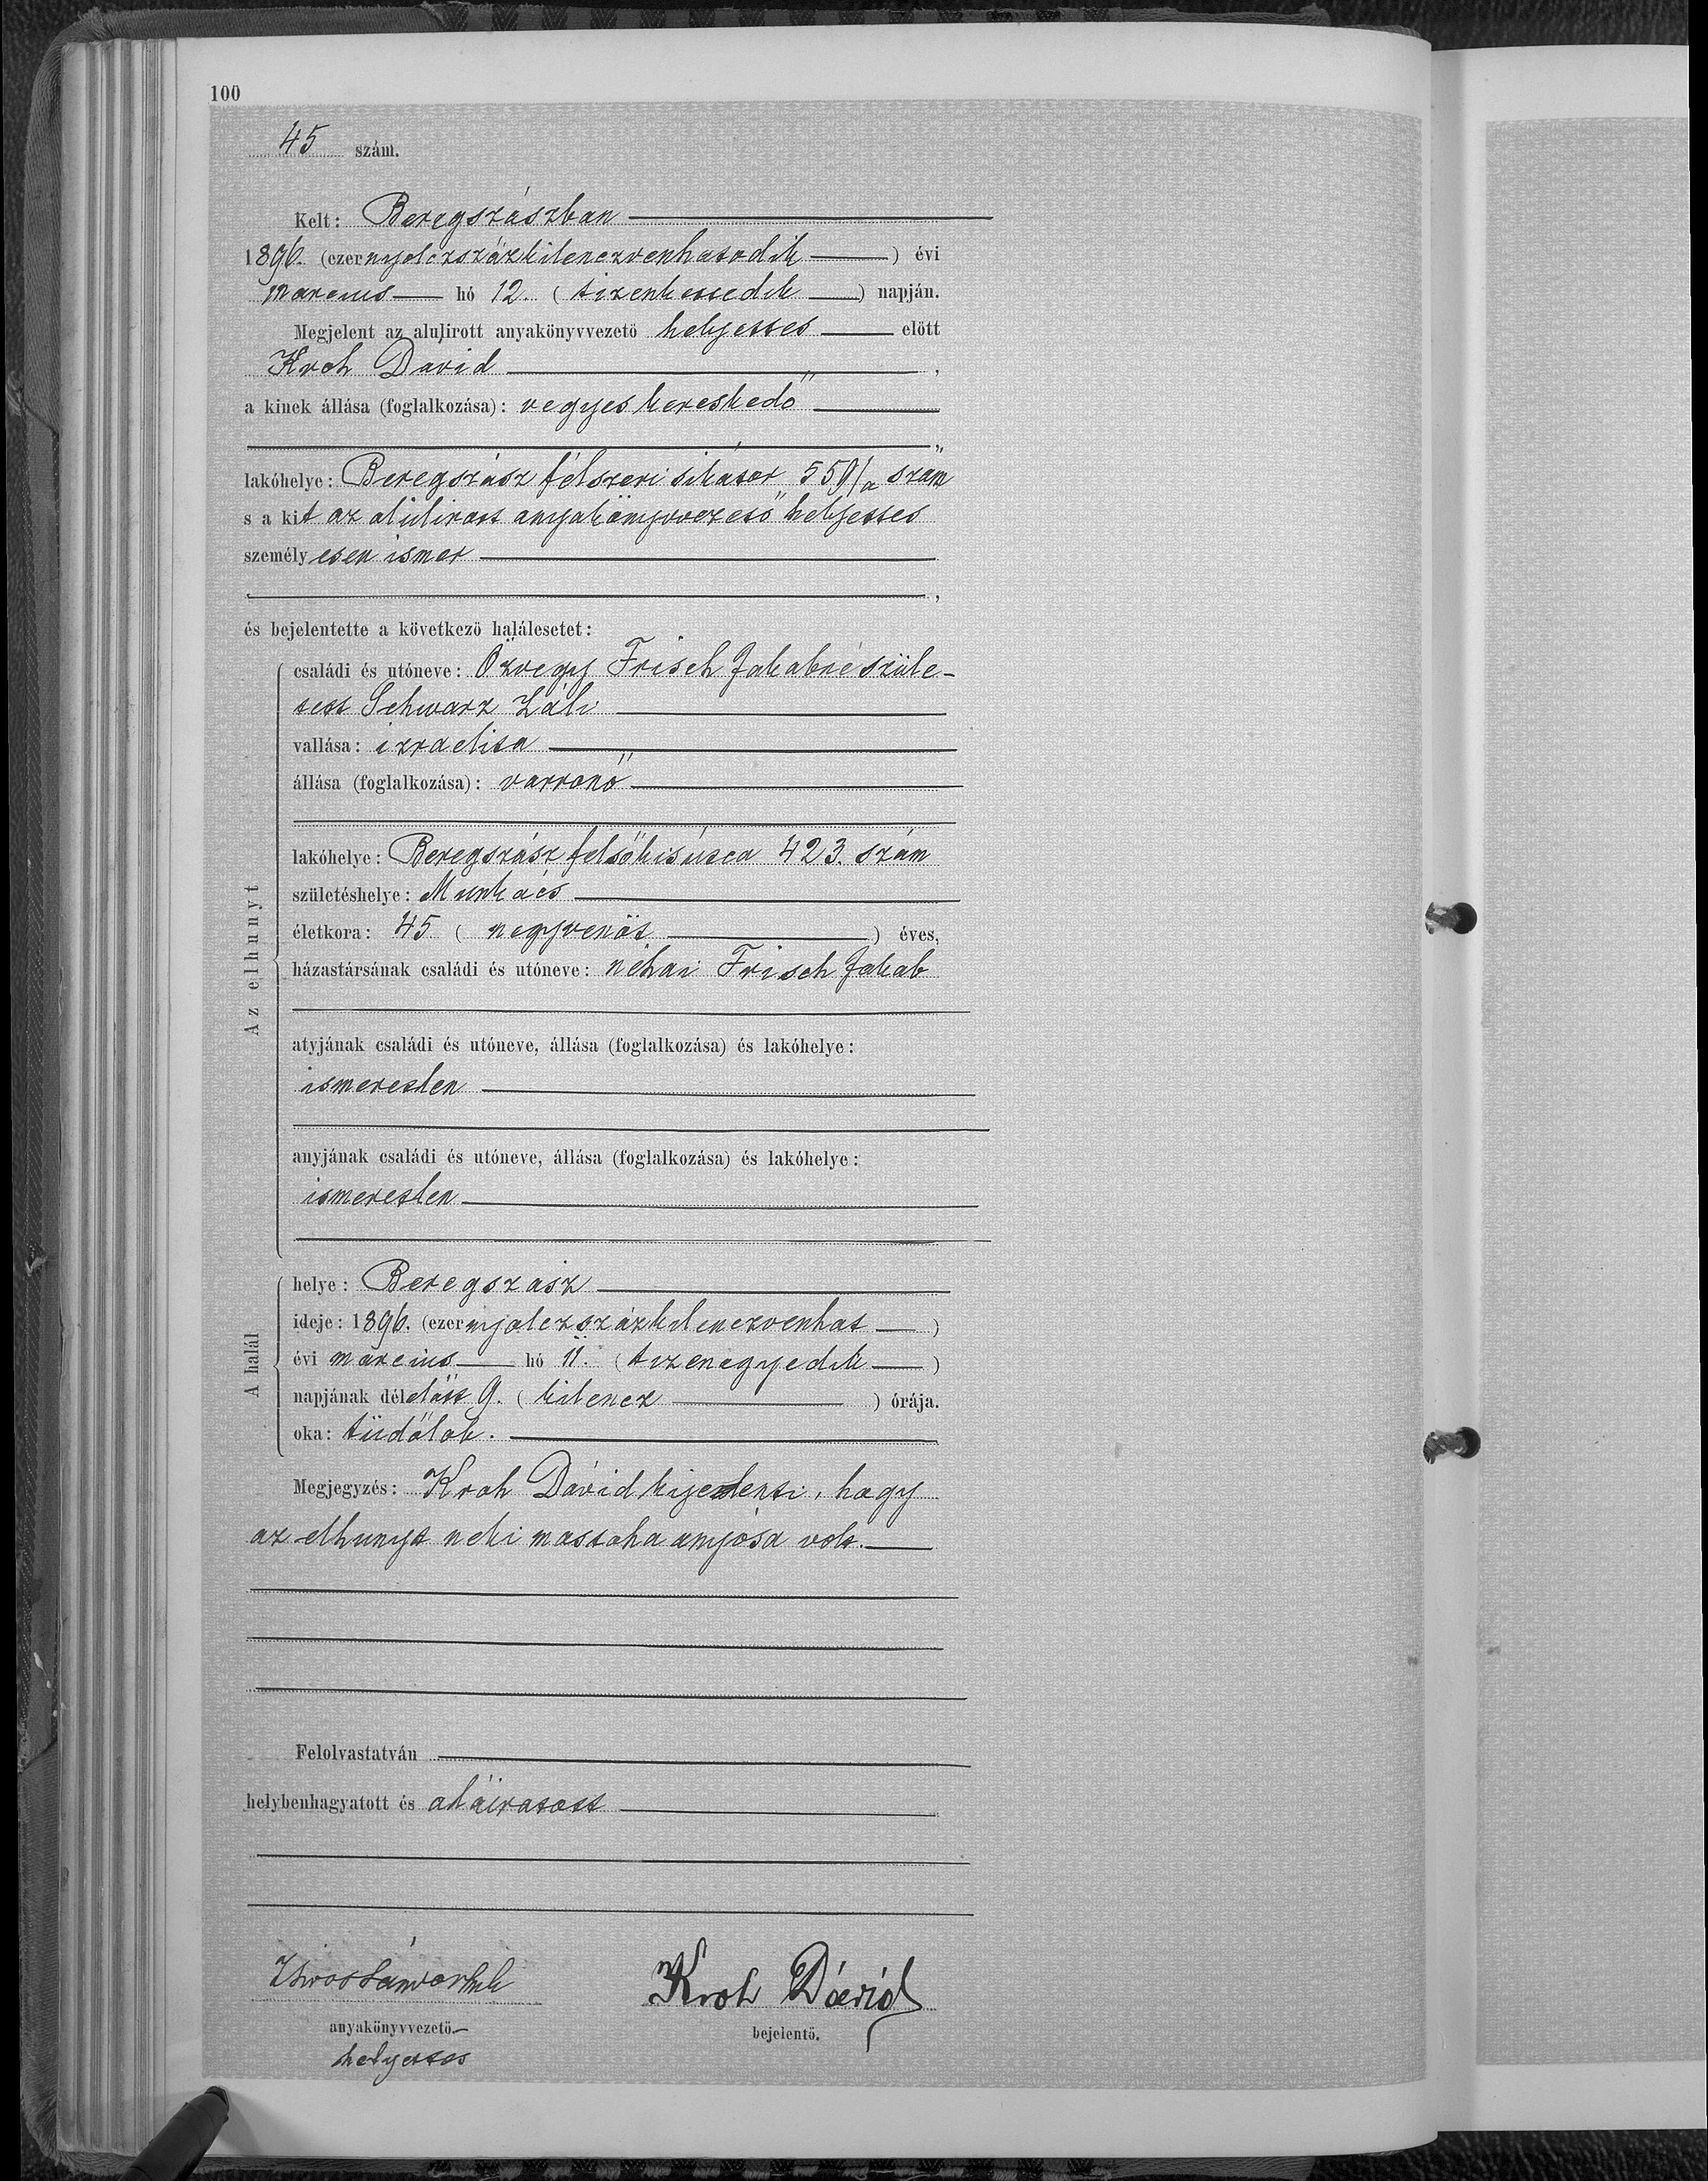 100
45 szám.
Kelt: Beregszászban
1896. (ezernyolczszázkilenczvenhatodik) évi
marcius hó 12. (tizenkettedik) napján.
Megjelent az alulirott anyakönyvvezető helyettes előtt
Kroh David,
a kinek állása (foglalkozása): vegyeskereskedő
lakóhelye: Beregszász félszeri sikátor 559/a szám
s a kit az alulirott anyakönyvvezető helyettes
személyesen ismer
és bejelentette a következő halálesetet:
Az elhunyt
családi és utóneve: Özvegy Frisch Jakabné szüle-
tett Schwarz Záli
vallása: izraelita
állása (foglalkozása): varronő
lakóhelye: Beregszász felsőkisutca 423. szám
születéshelye: Munkács
életkora: 45 (negyvenöt) éves,
házastársának családi és utóneve: néhai Frisch Jakab
atyjának családi és utóneve, állása (foglalkozása) és lakóhelye:
ismeretlen
anyjának családi és utóneve, állása (foglalkozása) és lakóhelye:
ismeretlen
A halál
helye: Beregszász
ideje: 1896. (ezernyolczszázkilenczvenhat)
évi marcius hó 11. (tizenegyedik)
napjának délelőtt 9. (kilencz) órája.
oka: tüdőlob.
Megjegyzés: Kroh Dávid kijelenti, hogy
az elhunyt neki mostoha anyósa volt.
Felolvastatván
helybenhagyatott és aláiratott
Kroh Dávid
anyakönyvvezető-
bejelentő.
helyettes